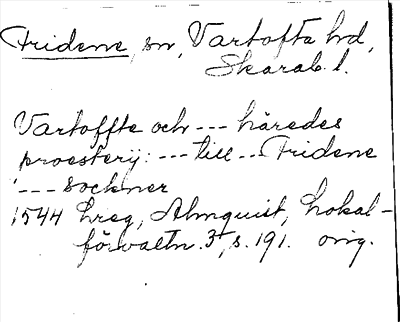 Fridene, sn, Vartofta hd,
Skarab. l.
Vartoffte och --- häredes
proesterij: --- till --- Fridene
--- sockner
1544 hreg, Almquist, Lokal-
förvaltn. 3, s. 191. orig.